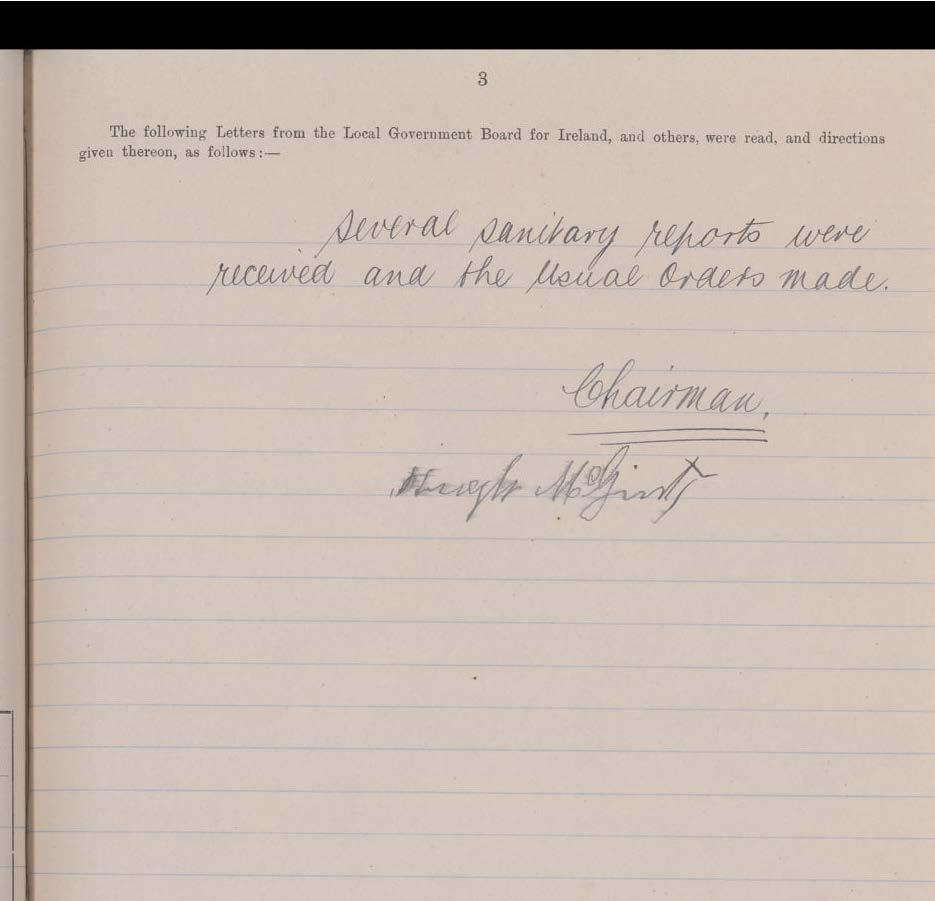 3
The following Letters from the Local Government Board for Ireland, and others, were read, and directions
given thereon, as follows:—
Several sanitary reports were
received and the usual orders made.
Chairman.
Hugh